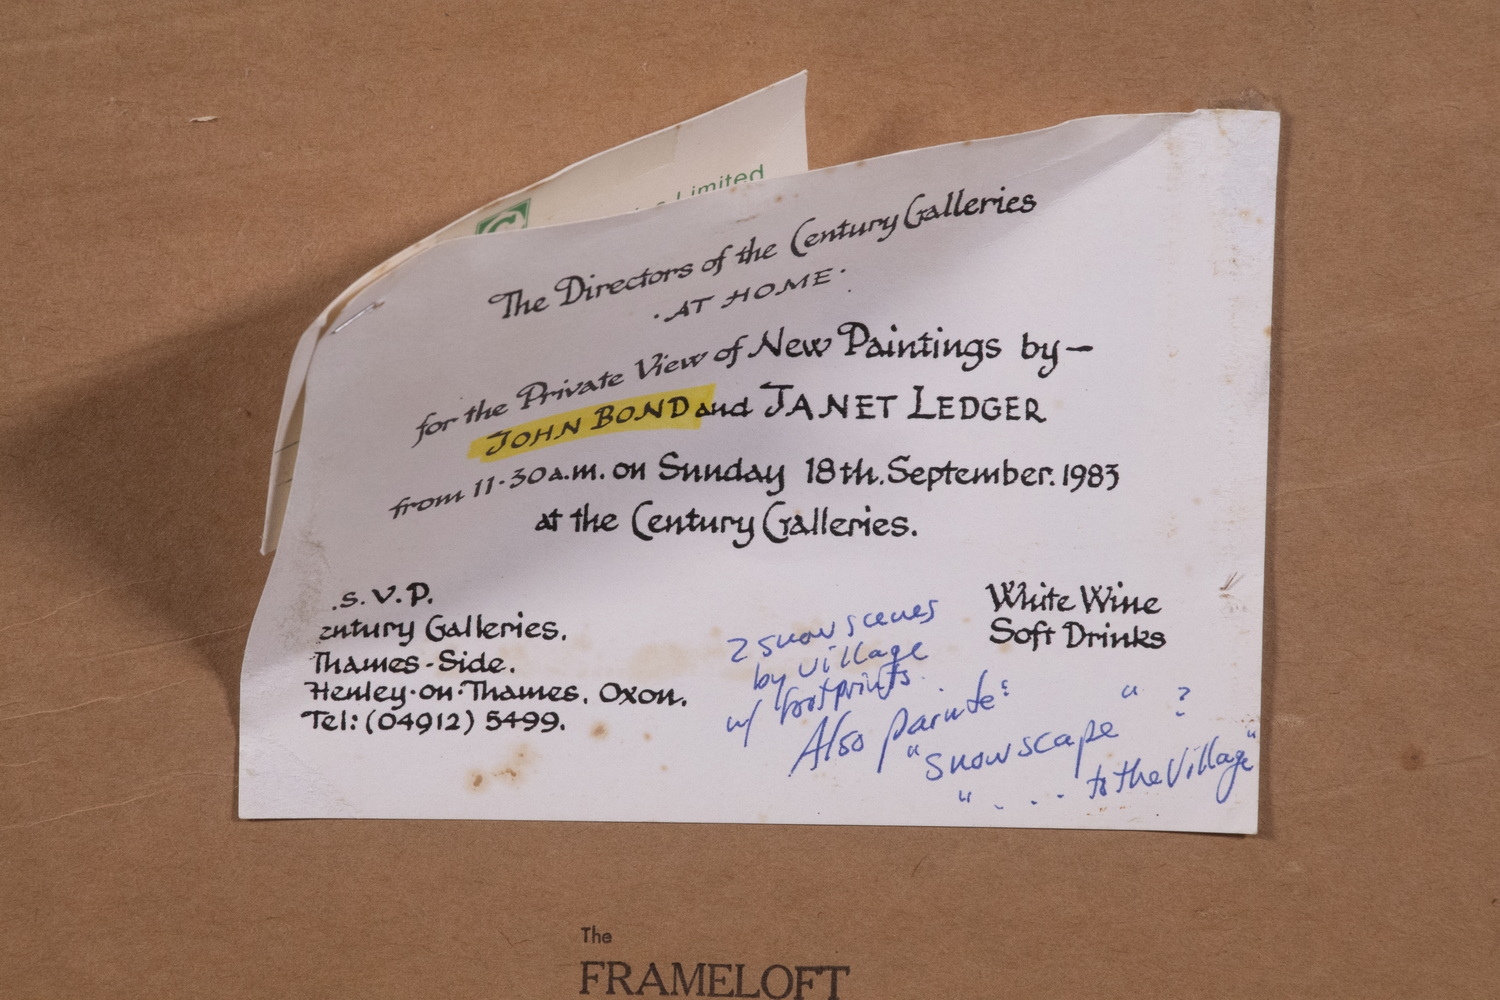 Limited
The Directors of the Century Galleries
·AT HOME·
for the Private View of New Paintings by—
JOHN BOND and JANET LEDGER
from 11·30a.m. on Sunday 18th. September. 1983
at the Century Galleries.
.S.V.P.
entury Galleries.
Thames-Side.
Henley·on·Thames, Oxon.
Tel: (04912) 5499.
White Wine
Soft Drinks
2 snow scenes
by village
w/ footprints
Also
"Snowscape" ?
" . . . to the Village"
The
FRAMELOFT